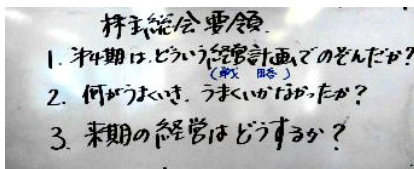 株主総会要領
1. 第4期は、どういう経営計画でのぞんだか?
(戦略)
2. 何がうまくいき、うまくいかなかったか?
3. 来期の経営はどうするか?